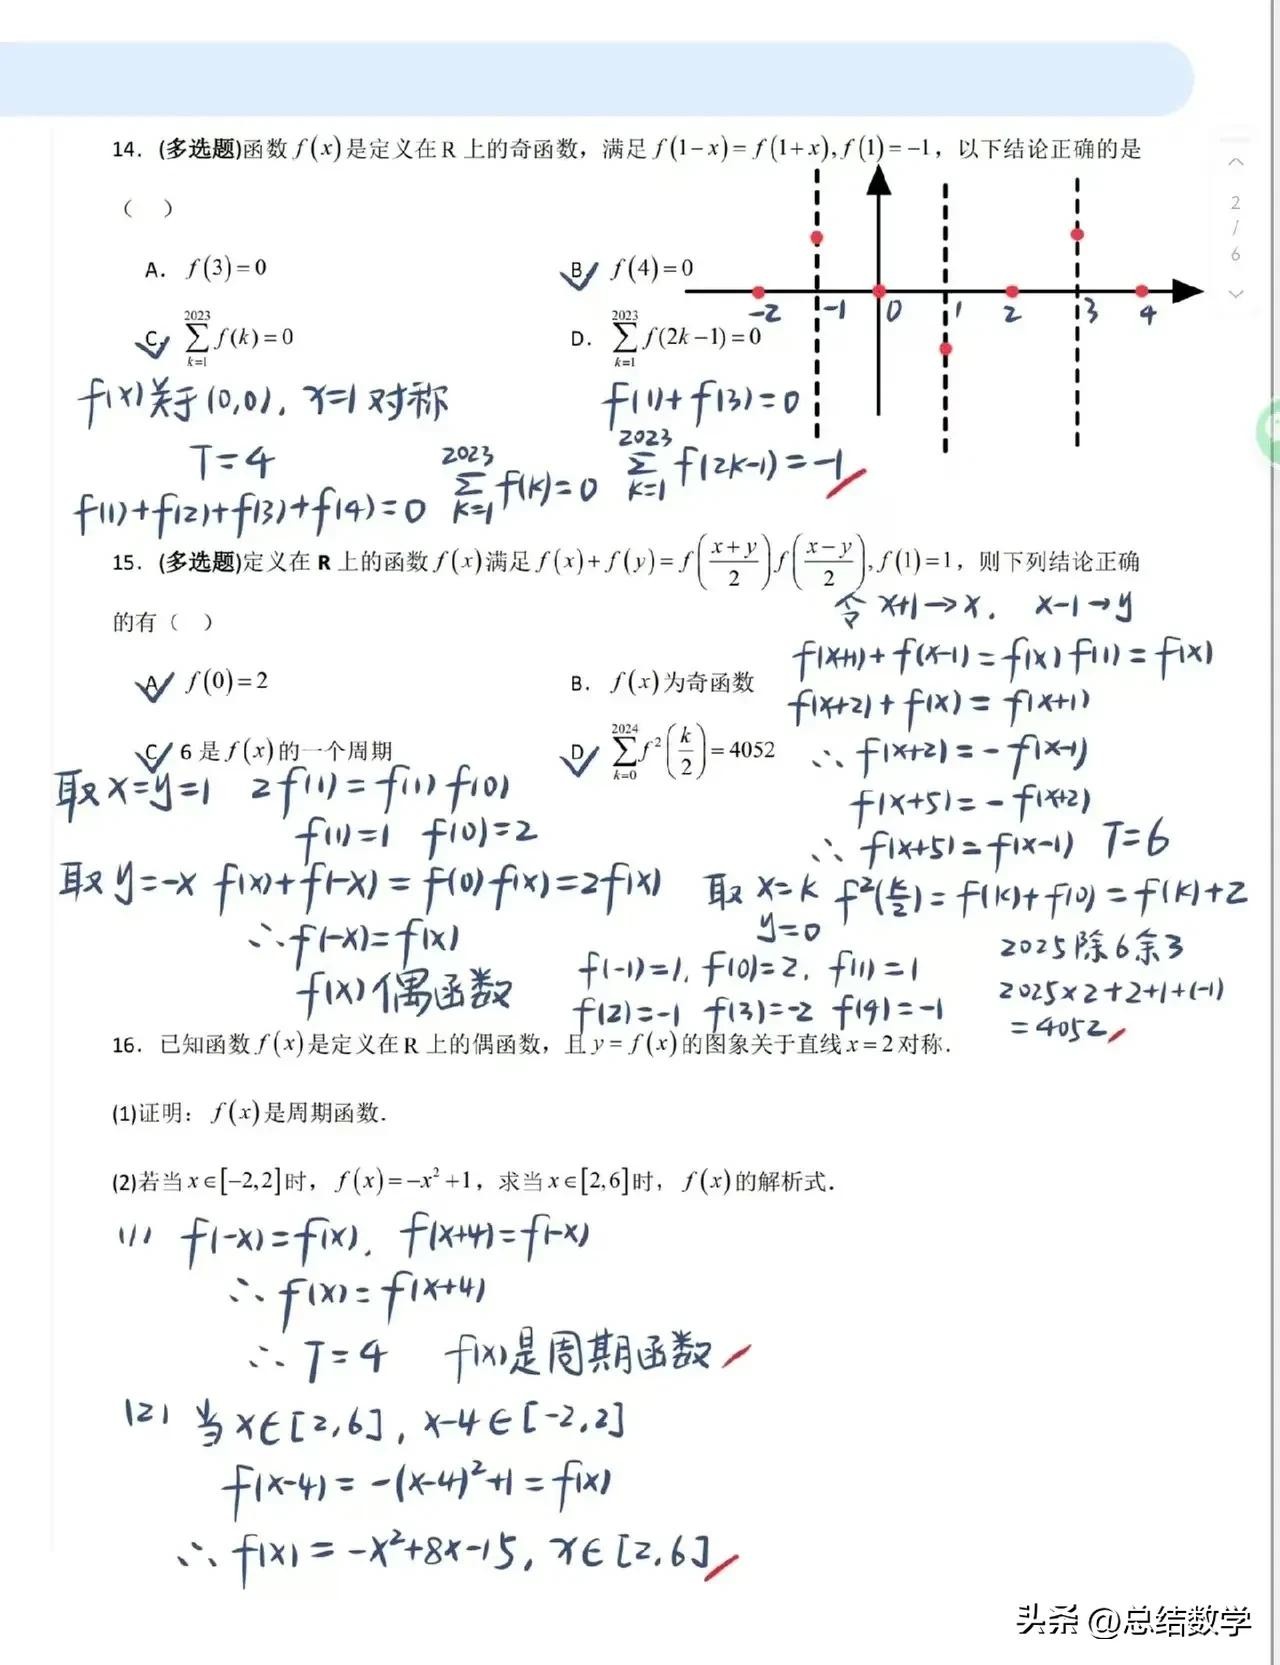 14．(多选题)函数 f(x) 是定义在 R 上的奇函数，满足 f(1−x)=f(1+x), f(1)=−1，以下结论正确的是
（ ）
A． f(3)=0
B． f(4)=0
C． ∑_{k=1}^{2023} f(k)=0
D． ∑_{k=1}^{2023} f(2k−1)=0
-2 -1 0 1 2 3 4
f(x)关于(0,0), x=1对称
f(1)+f(3)=0
T=4
∑_{k=1}^{2023} f(k)=0
∑_{k=1}^{2023} f(2k-1)=-1
f(1)+f(2)+f(3)+f(4)=0
15．(多选题)定义在 R 上的函数 f(x) 满足 f(x)+f(y)=f((x+y)/2)f((x−y)/2), f(1)=1，则下列结论正确
的有（ ）
令 x+1→x. x-1→y
A． f(0)=2
B． f(x) 为奇函数
C． 6 是 f(x) 的一个周期
D． ∑_{k=0}^{2024} f²(k/2)=4052
f(x+1)+f(x-1)=f(x)f(1)=f(x)
f(x+2)+f(x)=f(x+1)
∴ f(x+2)=-f(x-1)
f(x+5)=-f(x+2)
∴ f(x+5)=f(x-1) T=6
取 x=y=1 2f(1)=f(1)f(0)
f(1)=1 f(0)=2
取 y=-x f(x)+f(-x)=f(0)f(x)=2f(x)
∴ f(-x)=f(x)
f(x)偶函数
取 x=k f²(k/2)=f(k)+f(0)=f(k)+2
y=0
f(-1)=1, f(0)=2, f(1)=1
f(2)=-1 f(3)=-2 f(4)=-1
2025除6余3
2025×2+2+1+(-1)
=4052
16．已知函数 f(x) 是定义在 R 上的偶函数，且 y=f(x) 的图象关于直线 x=2 对称．
(1)证明：f(x) 是周期函数．
(2)若当 x∈[−2,2] 时，f(x)=−x²+1，求当 x∈[2,6] 时，f(x) 的解析式．
(1) f(-x)=f(x), f(x+4)=f(-x)
∴ f(x)=f(x+4)
∴ T=4 f(x)是周期函数
(2) 当 x∈[2,6], x-4∈[-2,2]
f(x-4)=-(x-4)²+1=f(x)
∴ f(x)=-x²+8x-15, x∈[2,6]
2
/
6
头条 @总结数学